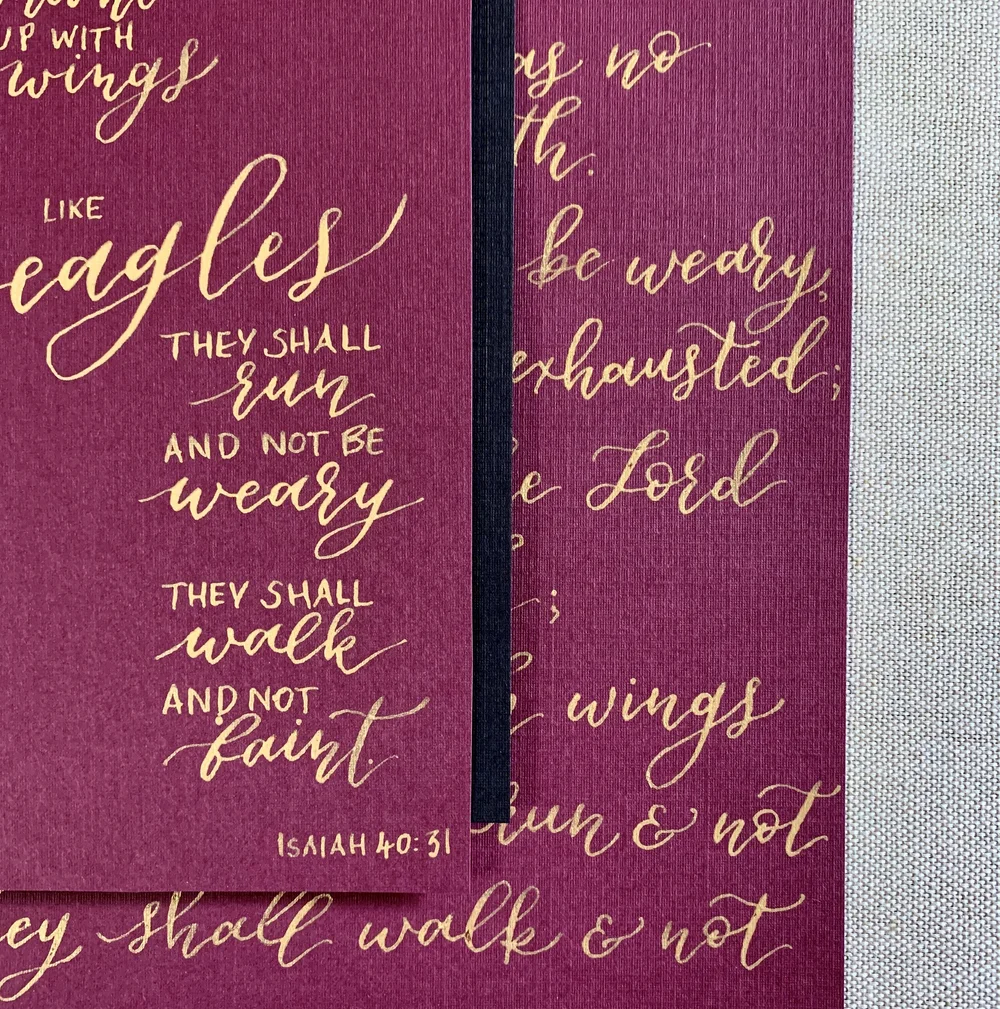 UP WITH
wings
LIKE
eagles
THEY SHALL
run
AND NOT BE
weary
THEY SHALL
walk
AND NOT
faint.
ISAIAH 40:31
as no
th.
be weary,
exhausted;
Lord
;
wings
run & not
ey shall walk & not